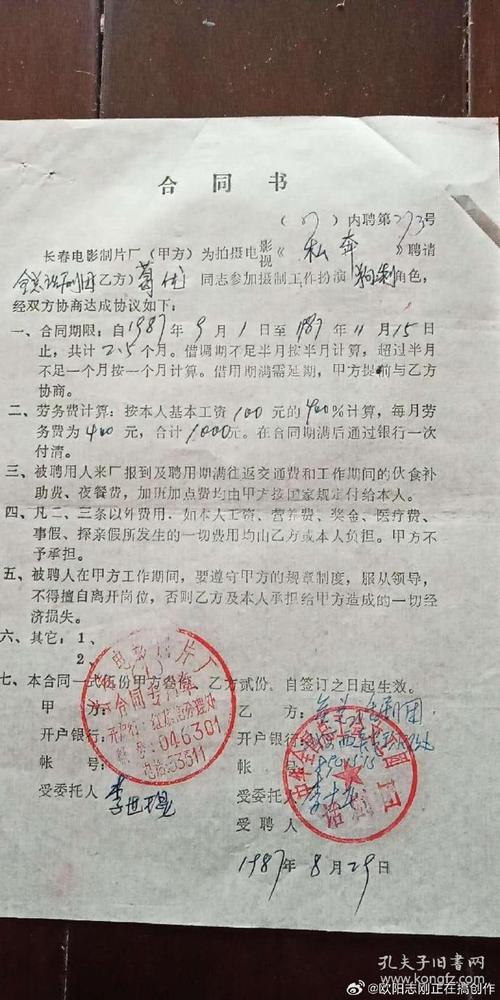 合同书
(87)内聘第273号
长春电影制片厂(甲方)为拍摄电影视《私奔》聘请
全总话剧团(乙方)葛优同志参加摄制工作扮演 角色,
经双方协商达成协议如下:
一、合同期限:自1987年9月1日至1987年11月15日
止,共计2.5个月。借调期不足半月按半月计算,超过半月
不足一个月按一个月计算。借用期满需延期,甲方提前与乙方
协商。
二、劳务费计算:按本人基本工资100元的400%计算,每月劳
务费为400元,合计1000元。在合同期满后通过银行一次
付清。
三、被聘用人来厂报到及聘用期满往返交通费和工作期间的伙食补
助费、夜餐费,加班加点费均由甲方按国家规定付给本人。
四、凡二、三条以外费用,如本人工资、营养费、奖金、医疗费、
事假、探亲假所发生的一切费用均由乙方或本人负担。甲方不
予承担。
五、被聘人在甲方工作期间,要遵守甲方的规章制度,服从领导,
不得擅自离开岗位,否则乙方及本人承担给甲方造成的一切经
济损失。
六、其它:1、
2、
七、本合同一式伍份甲方叁份,乙方贰份,自签订之日起生效。
甲方: 乙方:全总话剧团
开户银行: 开户银行:
帐号: 帐号:
受委托人 李世 受委托人
受聘人
1987年8月29日
长春电影制片厂
合同专用章
开户行:红旗街办理处
帐号:046301
电话:53311
中华全国总工会文工团
话剧团
孔夫子旧书网
@欧阳志刚正在搞创作